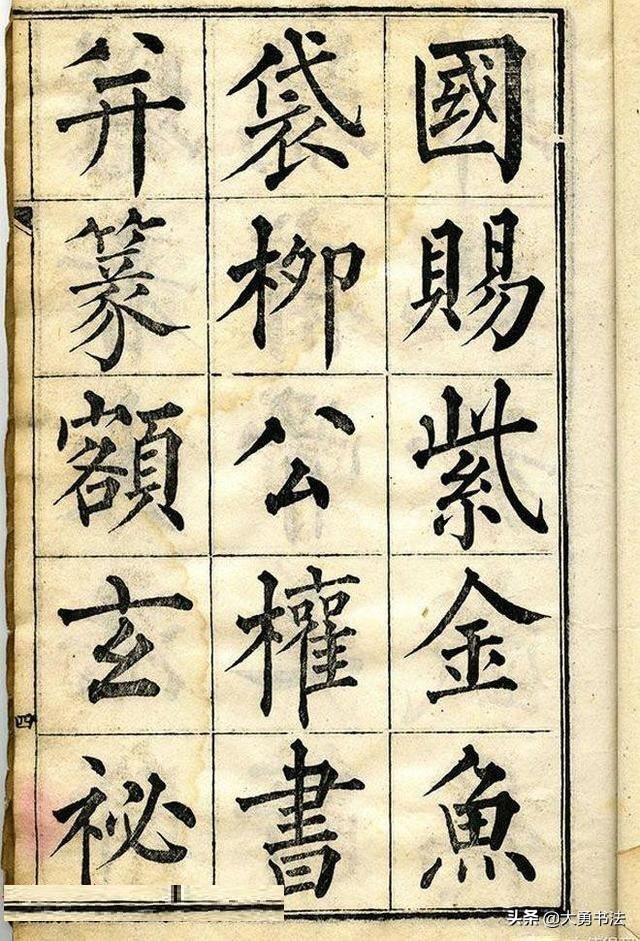 國賜紫金魚
袋柳公權書
并篆額玄祕
四
头条 @大勇书法